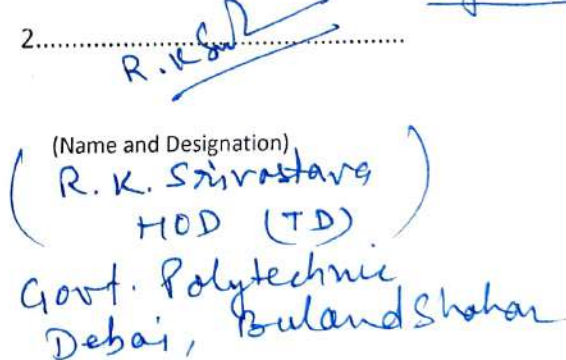 2........................................................
R. K
(Name and Designation)
( R. K. Srivastava )
HOD (TD)
Govt. Polytechnic
Debai, Bulandshahar